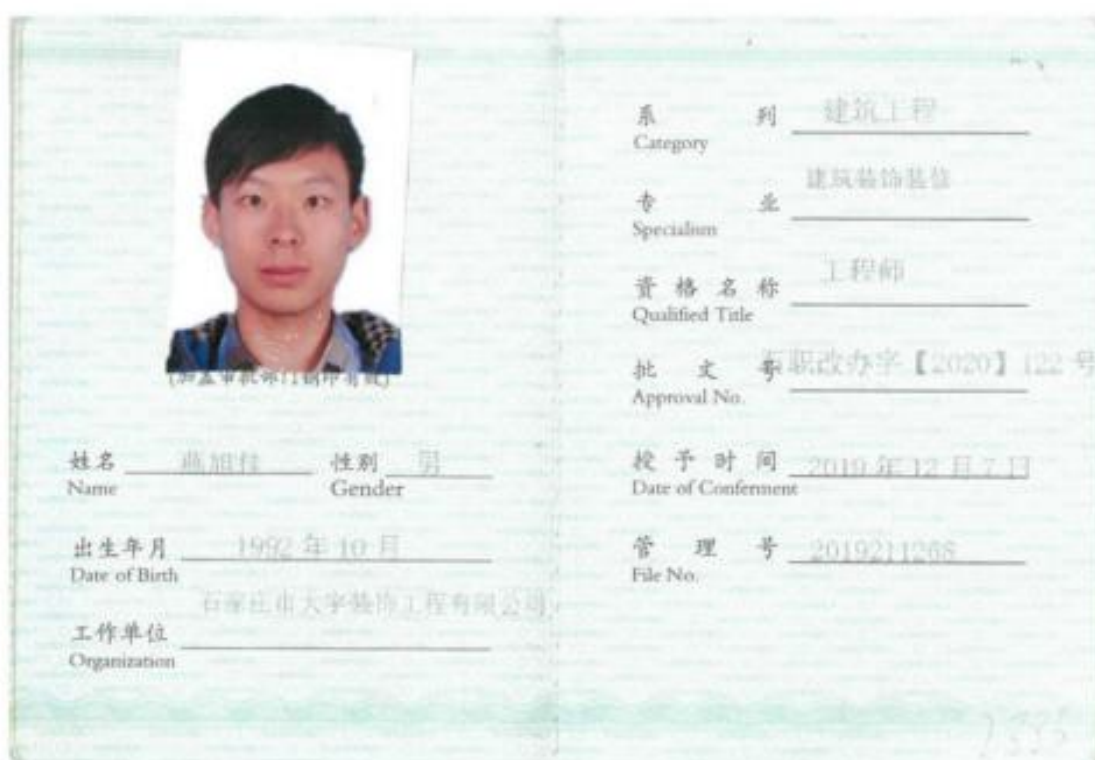 (加盖审批部门钢印有效)
姓名 旭佳 性别 男
Name Gender
出生年月 1992 年 10 月
Date of Birth
石家庄市大宇装饰工程有限公司
工作单位
Organization
系 列 建筑工程
Category
建筑装饰装修
专 业
Specialism
工程师
资 格 名 称
Qualified Title
批 文 号 职改办字【2020】122 号
Approval No.
授 予 时 间 2019 年 12 月 7 日
Date of Conferment
管 理 号 2019211268
File No.